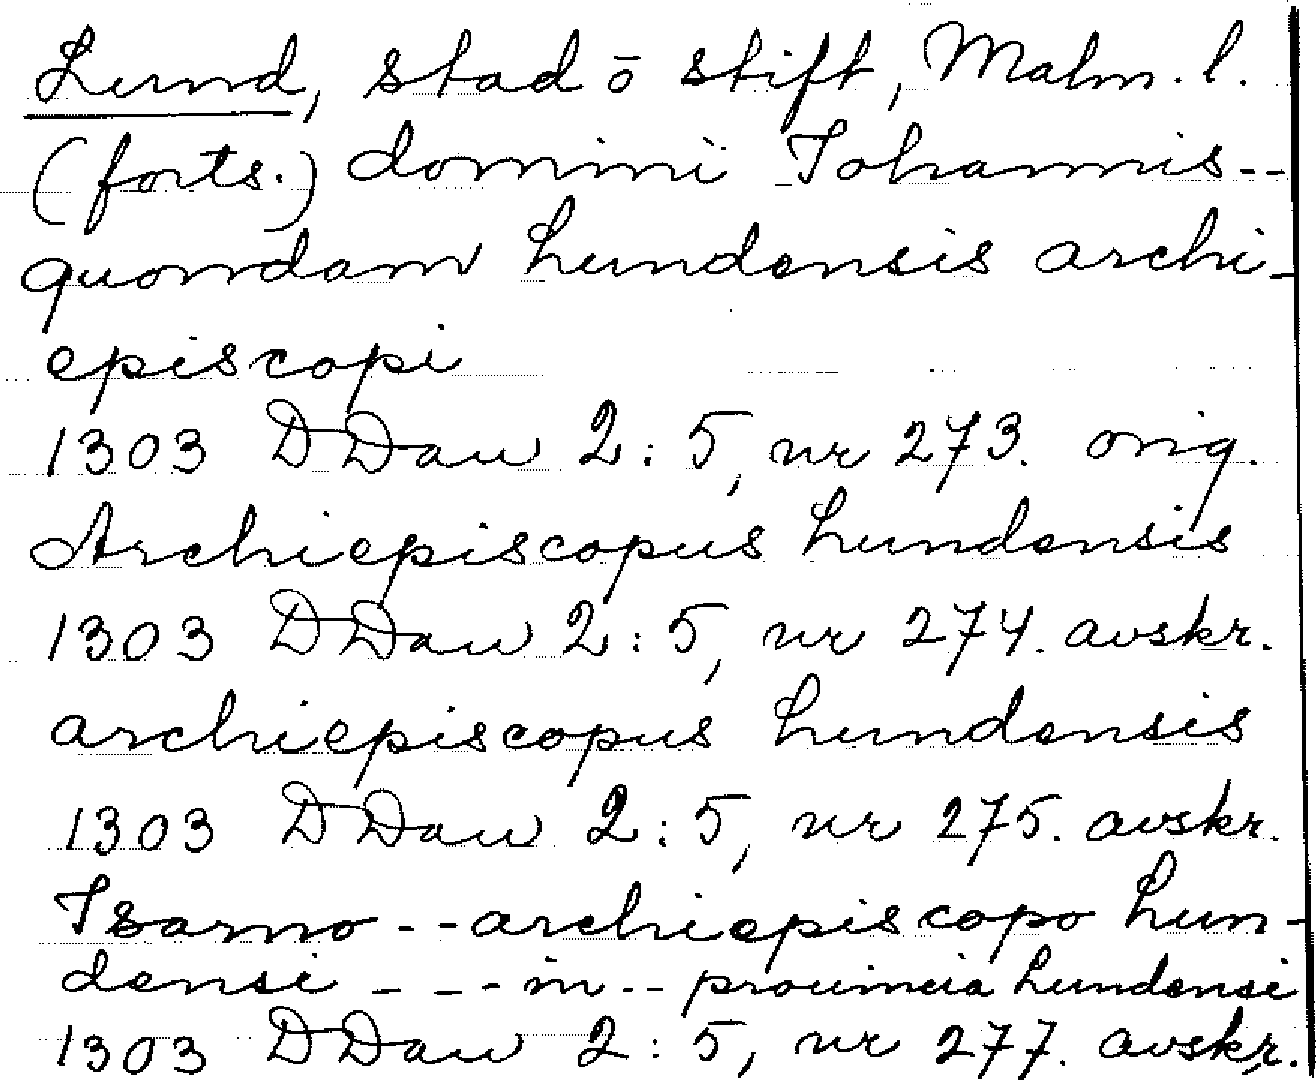 Lund, stad ō stift, Malm. l.
(forts.) domini Iohannis--
quondam Lundensis archi-
episcopi
1303 DDan 2:5, nr 273. orig.
Archiepiscopus Lundensis
1303 DDan 2:5, nr 274. avskr.
archiepiscopus Lundensis
1303 DDan 2:5, nr 275. avskr.
Isarno --archiepiscopo Lun-
densi - - - in -- prouincia Lundensi
1303 DDan 2:5, nr 277. avskr.